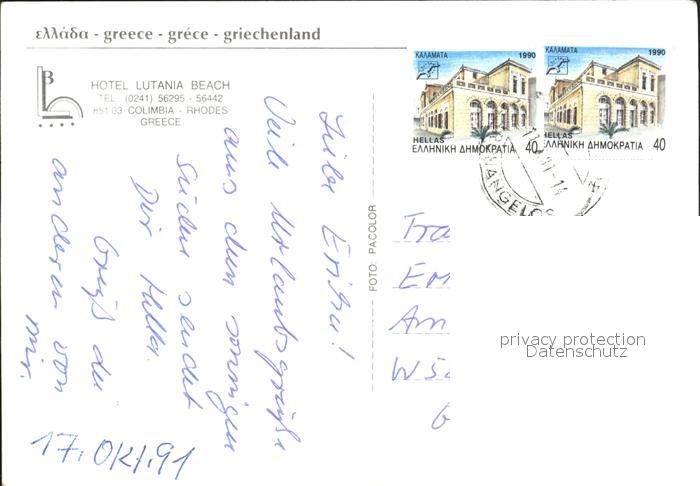 ελλάδα - greece - gréce - griechenland
B
HOTEL LUTANIA BEACH
TEL (0241) 56295 - 56442
851 03 COLIMBIA - RHODES
GREECE
Liebe Erika!
Viele Urlaubsgrüße
aus dem sonnigen
Süden sendet
Dir
Grüß die
anderen von
mir.
17. Okt. 91
FOTO PACOLOR
ΚΑΛΑΜΑΤΑ 1990
HELLAS
ΕΛΛΗΝΙΚΗ ΔΗΜΟΚΡΑΤΙΑ 40
ΚΑΛΑΜΑΤΑ 1990
HELLAS
ΕΛΛΗΝΙΚΗ ΔΗΜΟΚΡΑΤΙΑ 40
Fra
Er
Am
privacy protection
Datenschutz